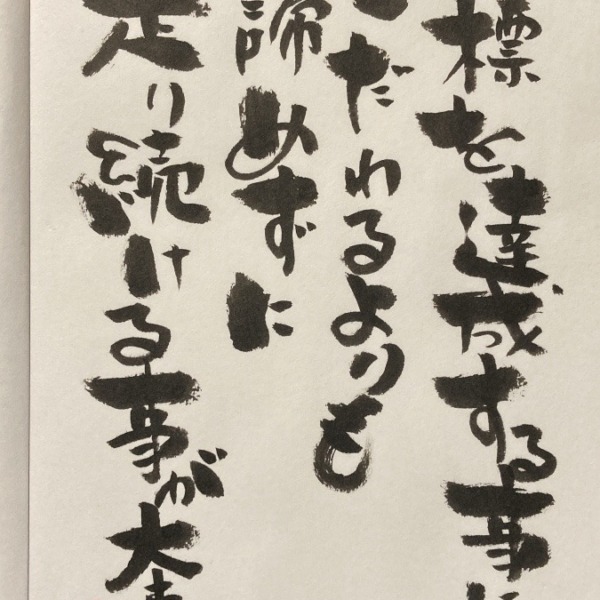 標を達成する事に
こだわるよりも
諦めずに
走り続ける事が大事